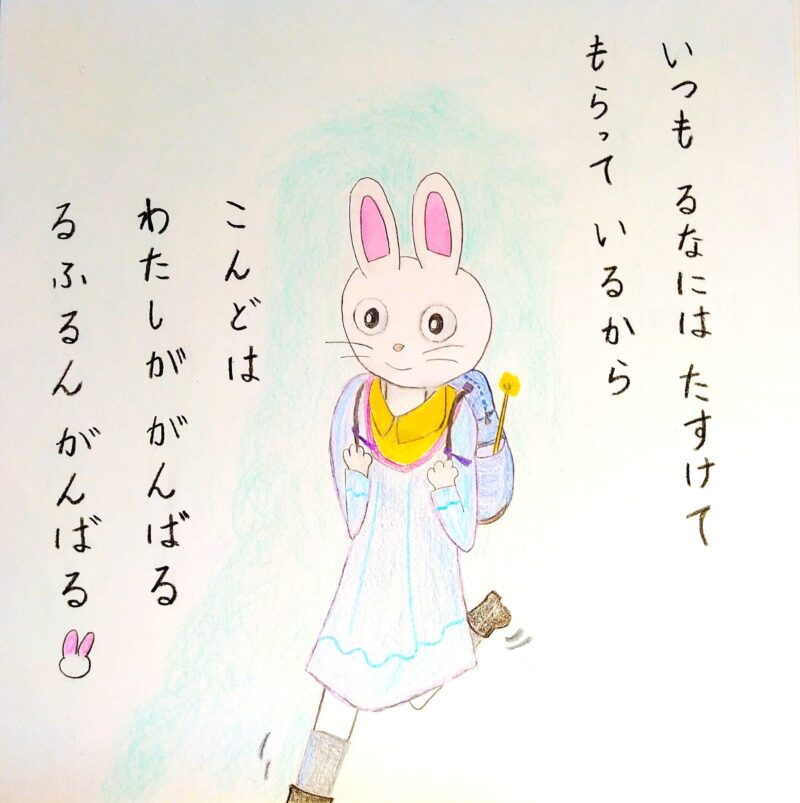 いつも るなには たすけて
もらって いるから
こんどは
わたしが がんばる
るふるん がんばる